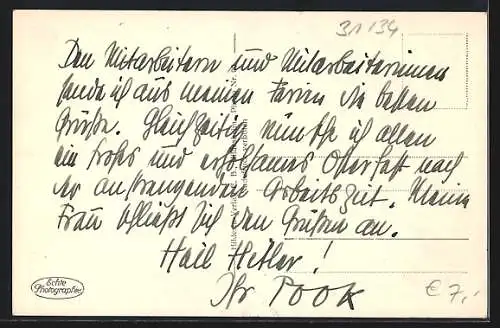 31134
Den Mitarbeitern und Mitarbeiterinnen
sende ich aus meinen Ferien die besten
Grüße. Gleichzeitig wünsche ich allen
ein frohes und erholsames Osterfest nach
der anstrengenden Arbeitszeit. Meine
Frau schließt sich den Grüßen an.
Heil Hitler!
Ihr Pook
Echte
Photographie
€ 7,-